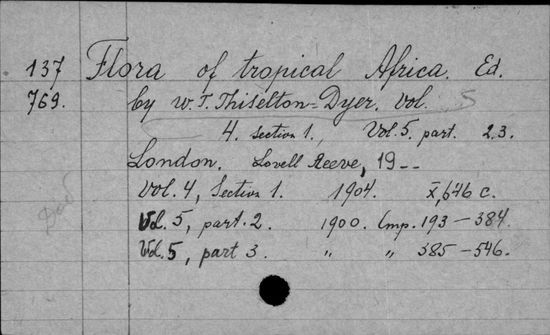 137 Flora of tropical Africa. Ed.
769. by W. T. Thiselton-Dyer. Vol. 5
4. section 1., Vol. 5. part. 2.3.
London. Lovell Reeve, 19--
Vol. 4, Section 1. 1904. X̄,646 c.
Vol. 5, part. 2. 1900. Cmp. 193-384.
Vol. 5, part 3. " " 385-546.